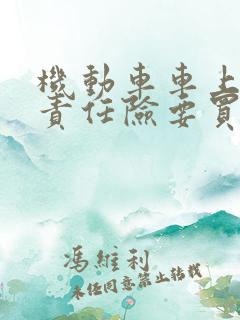 機動車車上
責任險要買
馮維利
未經同意禁止轉載